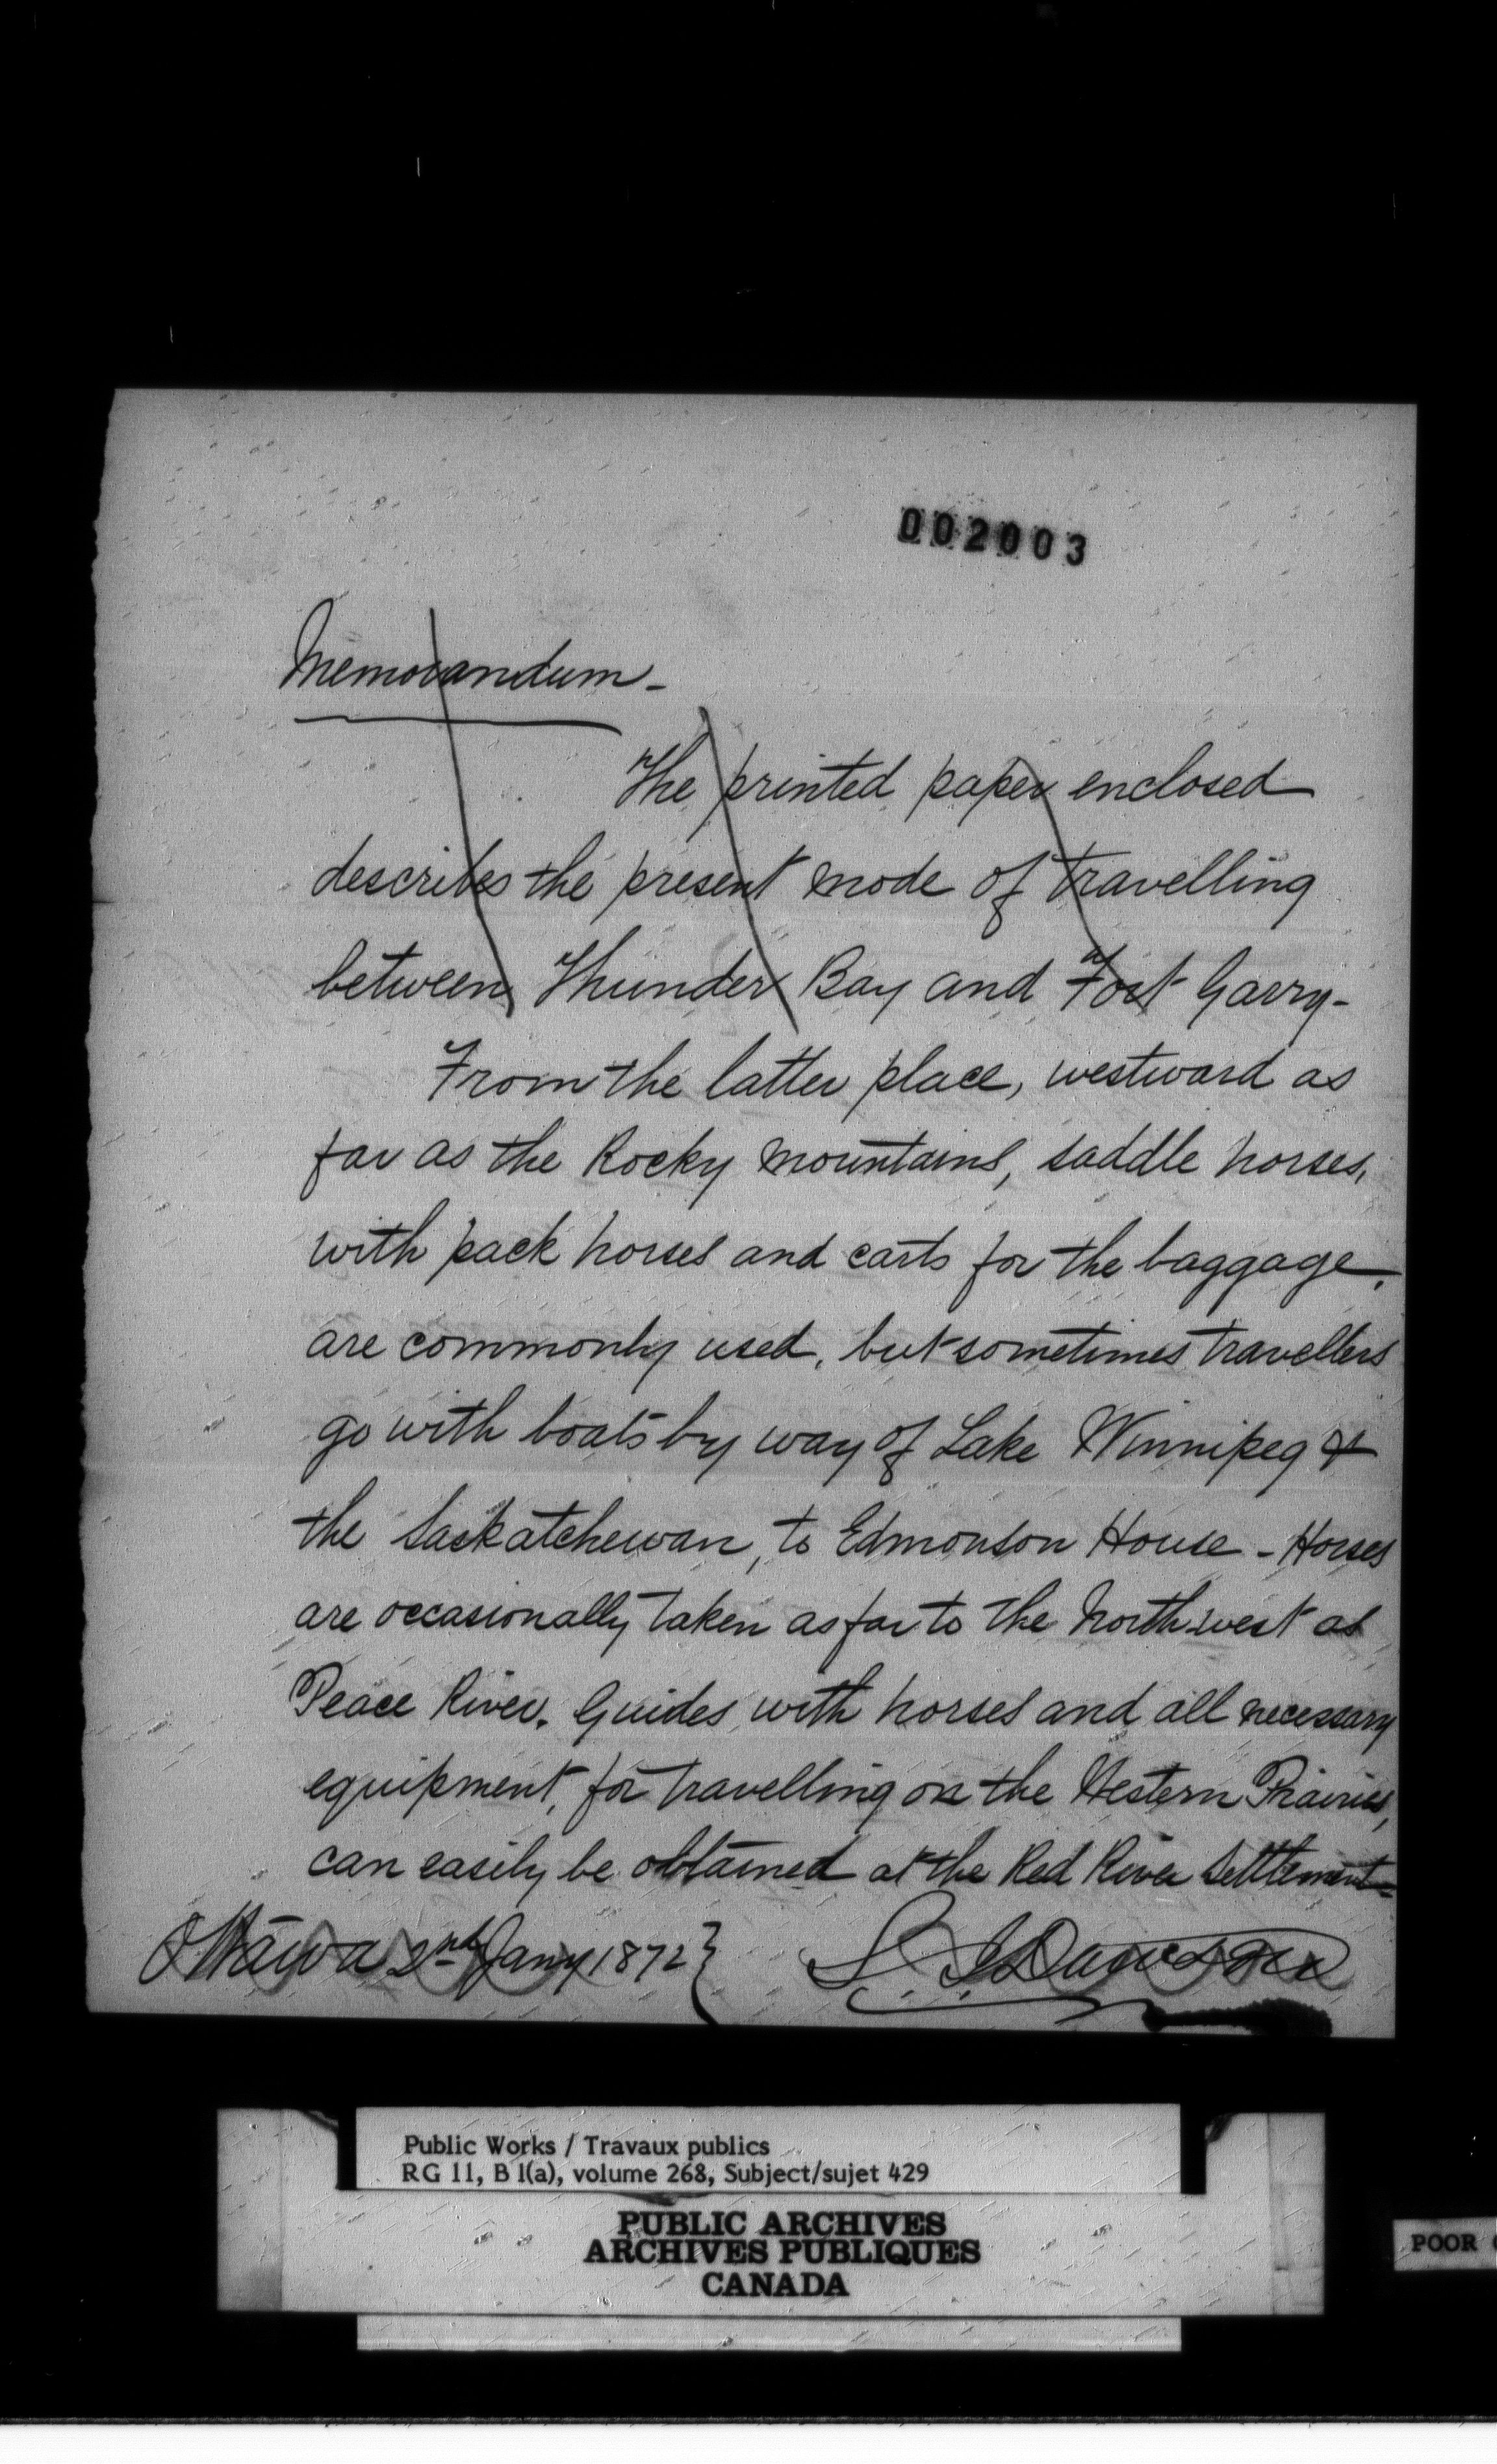 002003
Memorandum -
The printed paper enclosed
describes the present mode of travelling
between Thunder Bay and Fort Garry -
From the latter place, westward as
far as the Rocky Mountains, saddle horses,
with pack horses and carts for the baggage,
are commonly used, but sometimes travellers
go with boats by way of Lake Winnipeg &
the Saskatchewan, to Edmonton House - Horses
are occasionally taken as far to the North west as
Peace River. Guides with horses and all necessary
equipment, for travelling on the Western Prairies,
can easily be obtained at the Red River Settlement -
Ottawa 2nd Jany 1872 } S. J. Dawson
Public Works / Travaux publics
RG 11, B 1(a), volume 268, Subject/sujet 429
PUBLIC ARCHIVES
ARCHIVES PUBLIQUES
CANADA
POOR